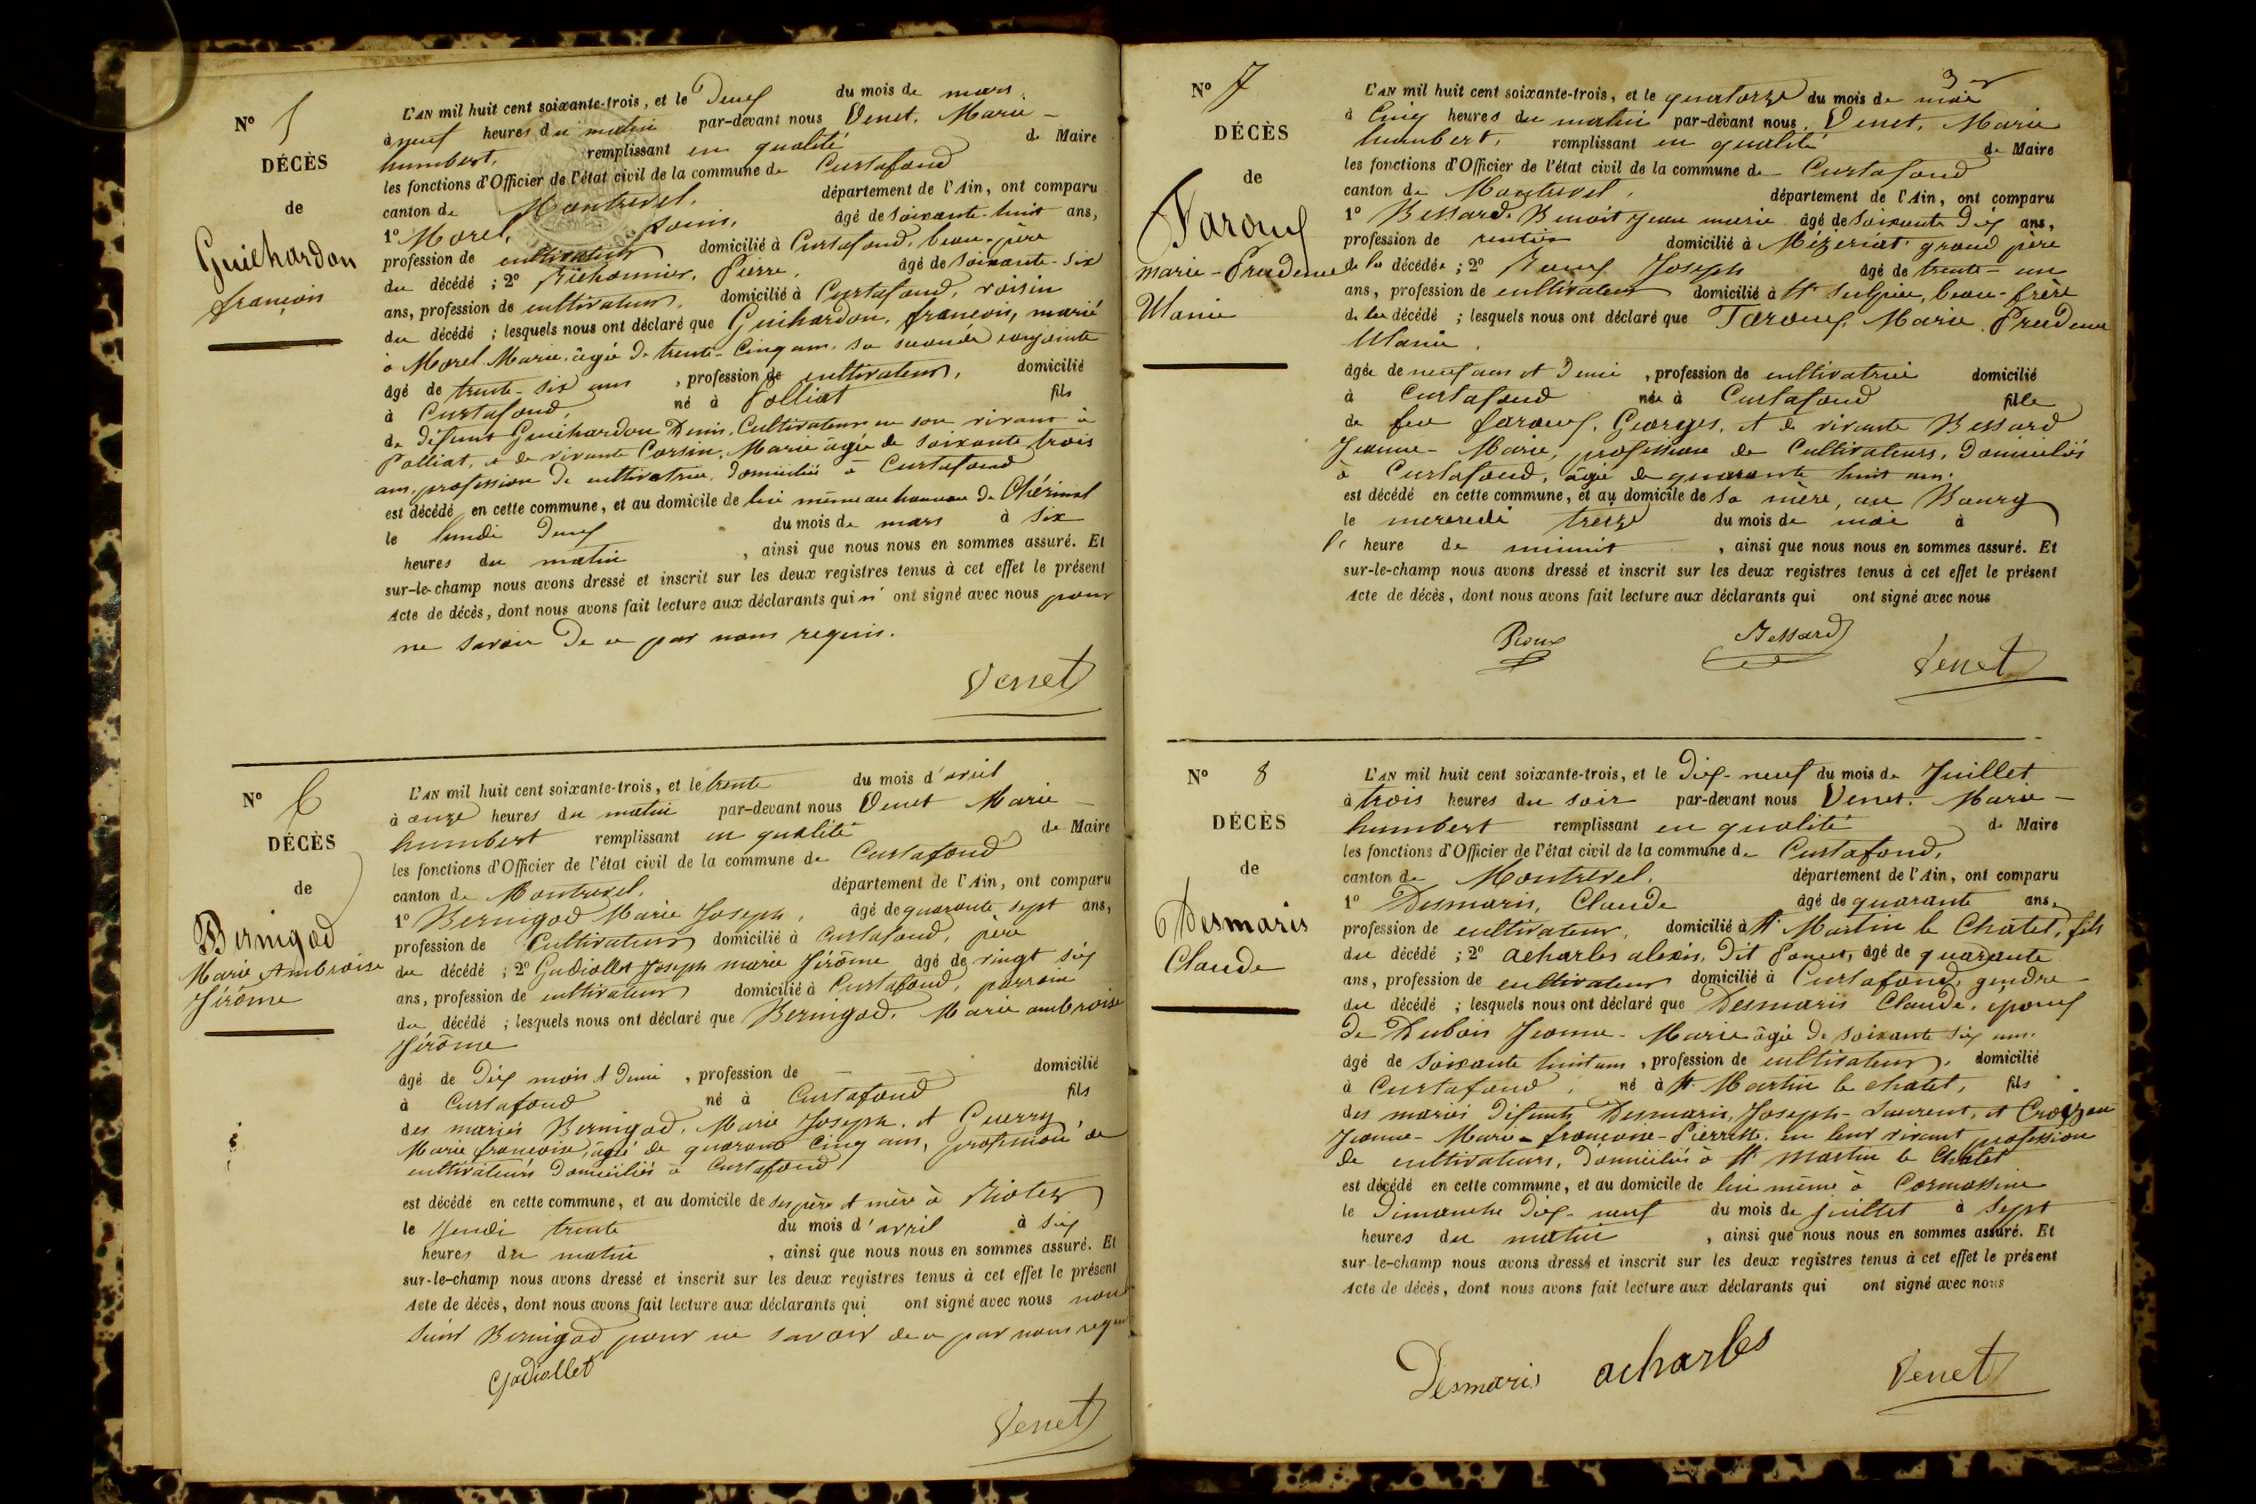 N° 5
DÉCÈS
de
Guichardon
françois
L'AN mil huit cent soixante-trois, et le Deux du mois de mars
à neuf heures du matin par-devant nous Venet, Marie-
humbert, remplissant en qualité de Maire
les fonctions d'Officier de l'état civil de la commune de Curtafond
canton de Montrevel, département de l'Ain, ont comparu
1° Morel, Louis, âgé de soixante-huit ans,
profession de cultivateur domicilié à Curtafond, beau-père
du décédé ; 2° Pierre, âgé de soixante-six
ans, profession de cultivateur, domicilié à Curtafond, voisin
du décédé ; lesquels nous ont déclaré que Guichardon, françois, marié
à Morel Marie, âgée de trente-cinq ans, sa seconde conjointe
âgé de trente-six ans, profession de cultivateur, domicilié
à Curtafond, né à Polliat fils
de défunt Guichardon Denis, Cultivateur en son vivant à
Polliat, et de vivante Corsin, Marie âgée de soixante trois
ans, profession de cultivatrice, domiciliée à Curtafond
est décédé en cette commune, et au domicile de lui même au hameau de
le lundi deux du mois de mars à six
heures du matin, ainsi que nous nous en sommes assuré. Et
sur-le-champ nous avons dressé et inscrit sur les deux registres tenus à cet effet le présent
Acte de décès, dont nous avons fait lecture aux déclarants qui n' ont signé avec nous pour
ne savoir de ce par nous requis.
Venet
N° 6
DÉCÈS
de
Bernigod
Marie Ambroise
Jérôme
L'AN mil huit cent soixante-trois, et le trente du mois d'avril
à onze heures du matin par-devant nous Venet Marie-
humbert remplissant en qualité de Maire
les fonctions d'Officier de l'état civil de la commune de Curtafond
canton de Montrevel, département de l'Ain, ont comparu
1° Bernigod Marie Joseph, âgé de quarante sept ans,
profession de Cultivateur domicilié à Curtafond, père
du décédé ; 2° Gadiollet Joseph marie Jérôme âgé de vingt six
ans, profession de cultivateur domicilié à Curtafond, parrain
du décédé ; lesquels nous ont déclaré que Bernigod, Marie ambroise
Jérôme
âgé de dix mois et demi, profession de — — domicilié
à Curtafond né à Curtafond fils
des mariés Bernigod, Marie Joseph, et Guerry
Marie françoise, âgée de quarante cinq ans, profession de
cultivateurs domiciliés à Curtafond
est décédé en cette commune, et au domicile de ses père et mère à
le jeudi trente du mois d'avril à six
heures du matin, ainsi que nous nous en sommes assuré. Et
sur-le-champ nous avons dressé et inscrit sur les deux registres tenus à cet effet le présent
Acte de décès, dont nous avons fait lecture aux déclarants qui ont signé avec nous non
Bernigod pour ne savoir de ce par nous requis
Gadiollet
Venet
N° 7
DÉCÈS
de
Faroux
marie-Prudence
L'AN mil huit cent soixante-trois, et le quatorze du mois de mai
à Cinq heures du matin par-devant nous, Venet, Marie
humbert, remplissant en qualité de Maire
les fonctions d'Officier de l'état civil de la commune de Curtafond
canton de Montrevel, département de l'Ain, ont comparu
1° Bessard, Benoit Jean marie âgé de soixante dix ans,
profession de rentier domicilié à Mézériat grand père
de la décédée ; 2° Joseph âgé de trente-un
ans, profession de cultivateur domicilié à St Sulpice, beau-frère
de la décédé ; lesquels nous ont déclaré que Faroux, Marie, Prudence
âgée de neuf ans et demi, profession de cultivatrice domicilié
à Curtafond née à Curtafond fille
de feu faroux, Georges, et de vivante Bessard
Jeanne-Marie, profession de Cultivateurs, Domiciliés
à Curtafond, âgée de quarante huit ans.
est décédé en cette commune, et au domicile de sa mère, au Bourg
le mercredi treize du mois de mai à
heure de minuit, ainsi que nous nous en sommes assuré. Et
sur-le-champ nous avons dressé et inscrit sur les deux registres tenus à cet effet le présent
Acte de décès, dont nous avons fait lecture aux déclarants qui ont signé avec nous
Bessard
Venet
N° 8
DÉCÈS
de
Desmaris
Claude
L'AN mil huit cent soixante-trois, et le Dix-neuf du mois de Juillet
à trois heures du soir par-devant nous Venet, Marie-
humbert remplissant en qualité de Maire
les fonctions d'Officier de l'état civil de la commune de Curtafond,
canton de Montrevel, département de l'Ain, ont comparu
1° Desmaris, Claude âgé de quarante ans,
profession de cultivateur, domicilié à St Martin le Chatel, fils
du décédé ; 2° acharles alexis, dit âgé de quarante
ans, profession de cultivateur domicilié à Curtafond, gendre
du décédé ; lesquels nous ont déclaré que Desmaris Claude, époux
de Dubois Jeanne-Marie âgée de soixante six ans
âgé de soixante huit ans, profession de cultivateur, domicilié
à Curtafond, né à St Martin le chatel, fils
des mariés défunts Desmaris, Joseph-Laurent, et
Jeanne-Marie-françoise-Pierrette, en leur vivant profession
de cultivateurs, domiciliés à St Martin le Chatel
est décédé en cette commune, et au domicile de lui même à
le Dimanche dix-neuf du mois de juillet à sept
heures du matin, ainsi que nous nous en sommes assuré. Et
sur-le-champ nous avons dressé et inscrit sur les deux registres tenus à cet effet le présent
Acte de décès, dont nous avons fait lecture aux déclarants qui ont signé avec nous
Desmaris acharles
Venet